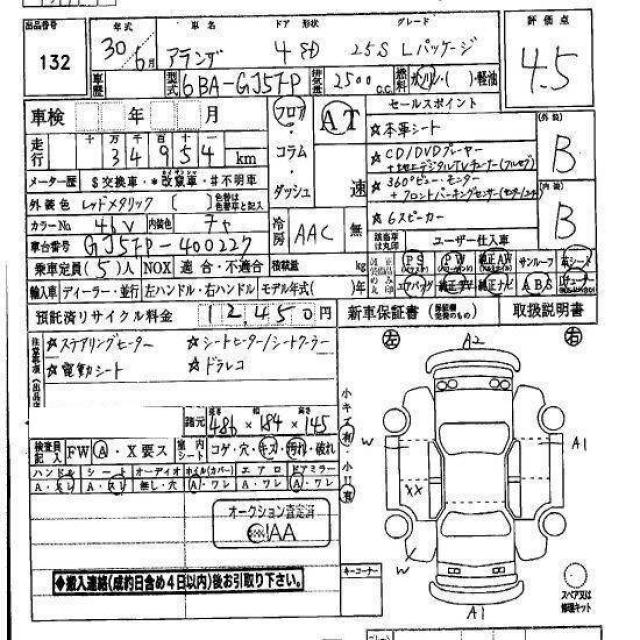 出品番号 132
年式 30年6月
車名 アテンザ
ドア 形状 4 SD
グレード 25S Lパッケージ
評価点 4.5
車歴
型式 6BA-GJ5FP
排気量 2500 c.c.
燃料 ガソリン・( )・軽油
車検 年 月
走行 十万千百十一 34954 km
メーター歴 $交換車・*改ざん車・#不明車
外装色 レッドメタリック ( )
カラーNo 46V 内装色 チャ
車台番号 GJ5FP-400227
乗車定員 (5)人 NOX 適合・不適合 積載量 kg
輸入車 ディーラー・並行 左ハンドル・右ハンドル モデル年式( )年
フロア・コラム・ダッシュ
AT 速
冷房 AAC 無
セールスポイント
☆本革シート
☆CD/DVDプレーヤー
+地上デジタルTVチューナー(フルセグ)
☆360°ビュー・モニター
+フロントパーキングセンサー(センター/コーナー)
☆6スピーカー
外装 B
内装 B
該当事は丸印 ユーザー仕入車
PS PW 純正AW サンルーフ 革シート
エアバッグ 純正TV 純正ナビ ABS
預託済リサイクル料金 12,450円
新車保証書 取扱説明書
注意事項
☆ステアリングヒーター ☆シートヒーター/シートクーラー
☆電動シート ☆ドラレコ
諸元 長さ 486 × 幅 184 × 高さ 145
検査員記入 FW A・X要ス
室内シート コゲ・穴・キズ・汚れ・破れ
ハンドル シート オーディオ ホイル(カバー) エアロ ドアミラー
A・スレ A・スレ 無し・穴 A・ワレ A・ワレ A・ワレ
オークション査定済
JAA
◆搬入連絡(成約日含め4日以内)後お引取り下さい。
小キズ有
小凹有
キーコーナー
左 A2 右
W A1
XX
W
A1
スペア又は
修理キット